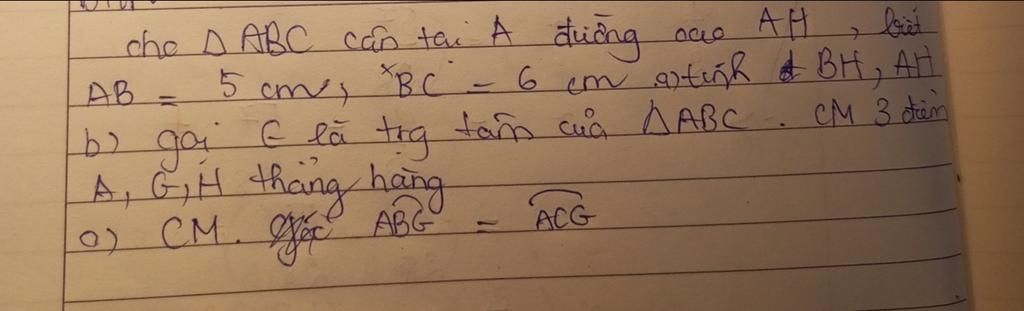 cho ΔABC cân tại A đường cao AH, biết
AB = 5 cm, BC = 6 cm a) tính BH, AH
b) gọi G là trg tâm của ΔABC. CM 3 điểm
A, G, H thẳng hàng
c) CM. góc ABG = ACG